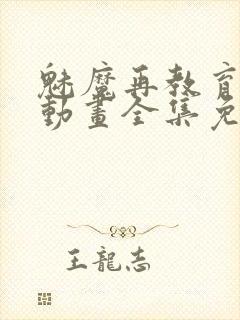 魅魔再教育
動畫全集免
王龍志